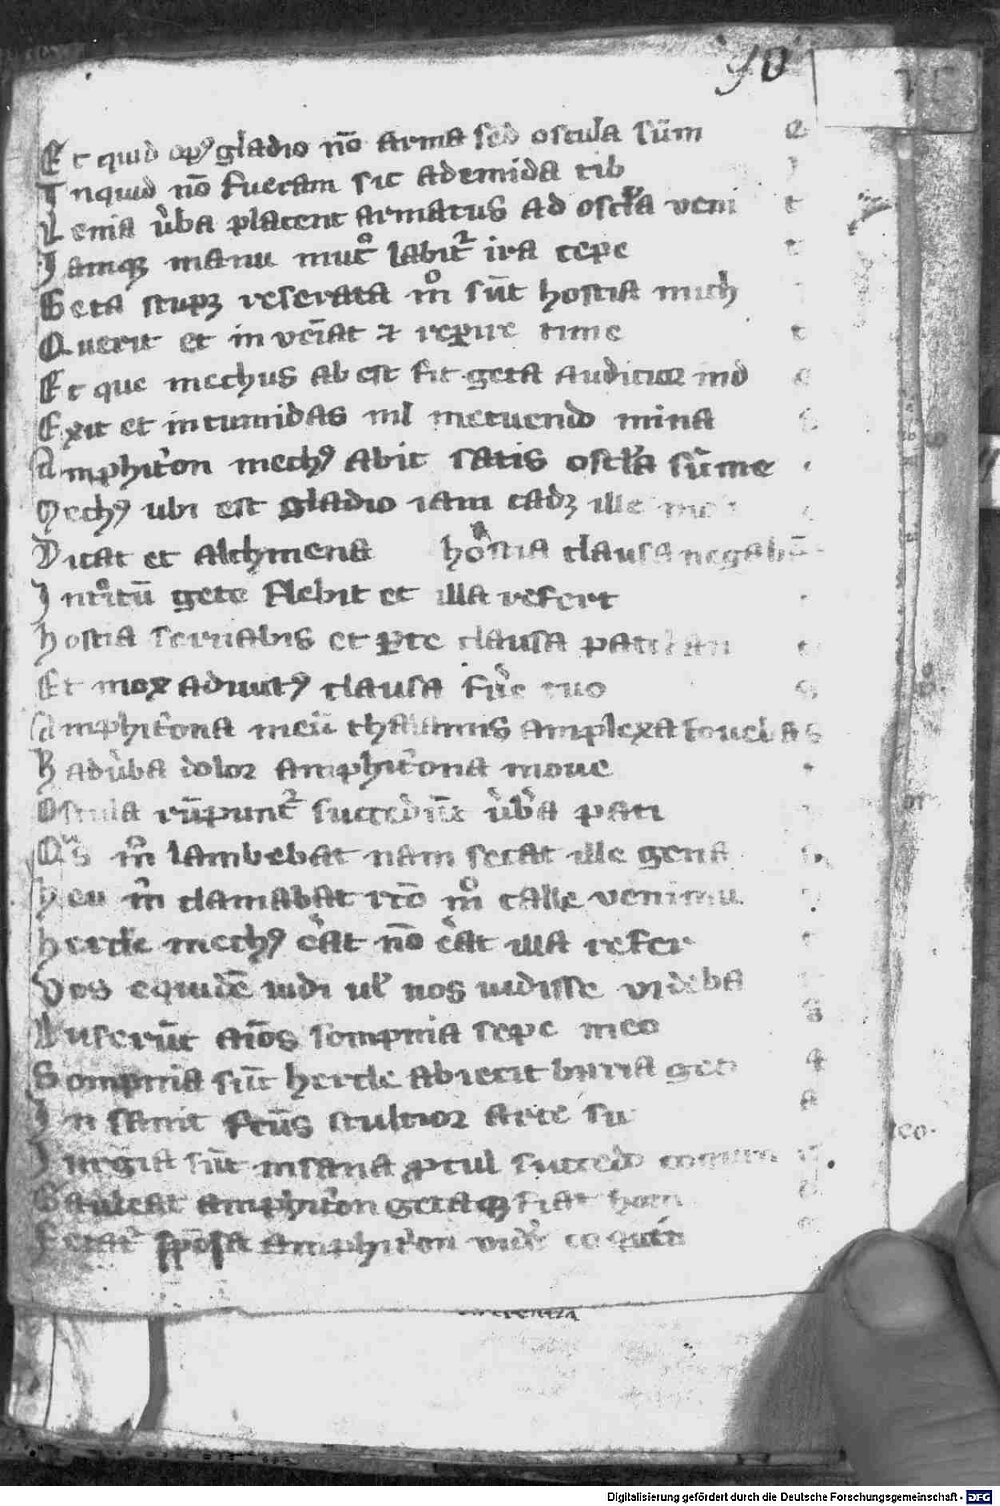 90
Et quid opꝰ gladio nō arma sed oscula sūm e
Inquid nō fueram sic ademida tib i
Lenia v̾ba placent armatus ad oscl̾a veni t
Iamqꝫ manu mucͦ labit᷑ ira cepe t
Geta stupꝫ reserata mͦ sūt hostia mich i
Querit et inveīat ⁊ rep̲ire time t
Et que mechus abest fit geta audicior ind e
Exit et intumidas nil metuendo mina s
Amphit̾on mechꝰ abit satis oscl̾a sūme
Mechꝰ ubi est gladio iam cadꝫ ille me
Dicat et alchmena hostia clausa negabā
Introitū gete flebit et illa refert
hostia seruabis et p̲te clausa
Et mox adiuūtꝰ clausa fue̾ tuo s
Amphit̾ona meū thalamis amplexa fouebas
h ad v̾ba dolor amphit̾ona moue t
Oscula rūpunt᷑ succedūt v̾ba pati
Qͣs m̊ lambebat nam secat ille gena s
heu m̊ clamabat mͦ calle venimu s
hercle mechꝰ e̾at nō e̾at illa refer t
Vos equidē uidi ul̾ nos uidisse videba
Luserūt aīos sompnia sepe meo s
Sompnia sūt hercle abiecit birria get a
In sanit fc̄us stultior arte su a
Iurgia sūt insana ꝓcul succedo
Gaudeat amphit̾on getaqꝫ fiat hom o
Letat᷑ sp̄osa amphit̾on
Digitalisierung gefördert durch die Deutsche Forschungsgemeinschaft - DFG